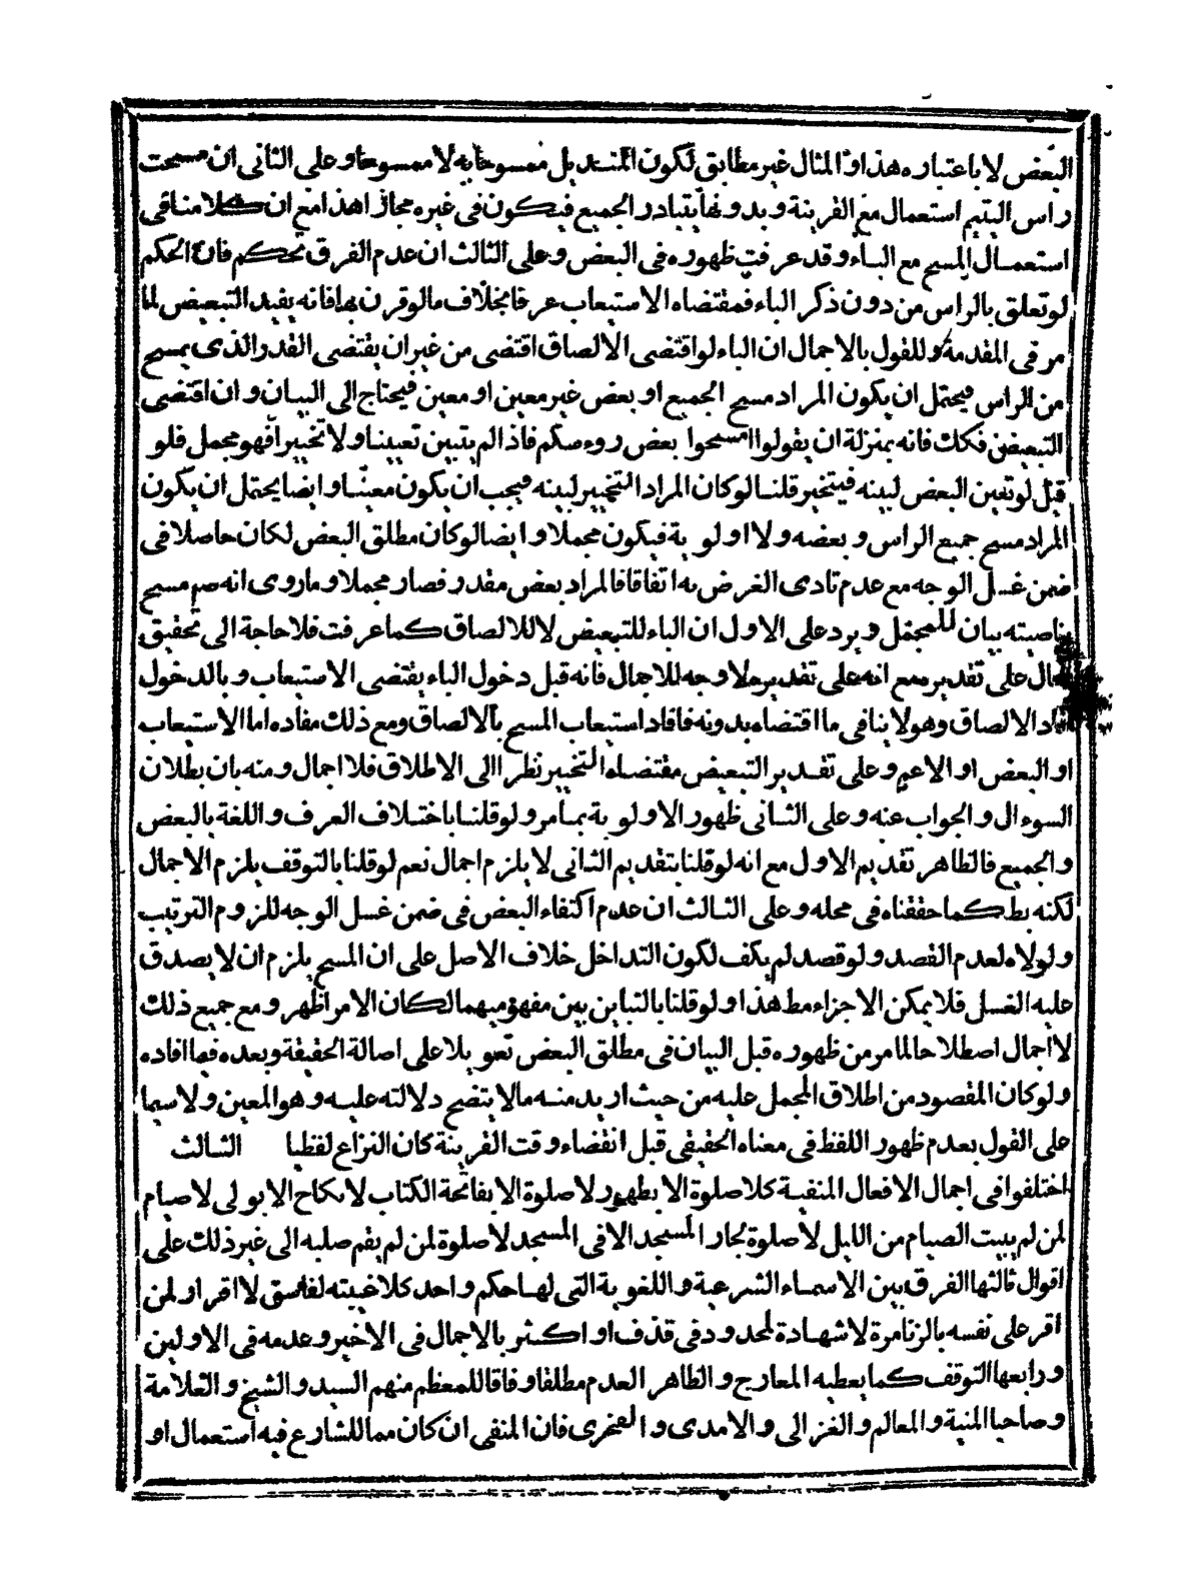 البعض لا باعتباره هذا او المثال غير مطابق لكون المنديل ممسوحا به لا ممسوحا وعلى الثانى ان مسحت
راس اليتيم استعمال مع القرينة وبدونها يتبادر الجميع فيكون فى غيره مجازا هذا مع ان كلامنا فى
استعمال المسح مع الباء وقد عرفت ظهوره فى البعض وعلى الثالث ان عدم الفرق تحكم فان الحكم
لو تعلق بالراس من دون ذكر الباء فمقتضاه الاستيعاب عرفا بخلاف ما لو قرن بها فانه يفيد التبعيض لما
مر فى المقدمة وللقول بالاجمال ان الباء لو اقتضى الالصاق اقتضى من غير ان يقتضى القدر الذى يمسح
من الراس فيحتمل ان يكون المراد مسح الجميع او بعض غير معين او معين فيحتاج الى البيان وان اقتضى
التبعيض فكك فانه بمنزلة ان يقولوا امسحوا بعض روءسكم فاذا لم يتبين تعيينا ولا تخييرا فهو مجمل فلو
قيل لو تعين البعض لبينه فيتخير قلنا لو كان المراد التخيير لبينه فيجب ان يكون معينا وايضا يحتمل ان يكون
المراد مسح جميع الراس وبعضه ولا اولوية فيكون مجملا وايضا لو كان مطلق البعض لكان حاصلا فى
ضمن غسل الوجه مع عدم تادى الغرض به اتفاقا فالمراد بعض مقدر فصار مجملا وما روى انه صم مسح
بناصيته بيان للمجمل ويرد على الاول ان الباء للتبعيض لا للالصاق كما عرفت فلا حاجة الى تحقيق
الحال على تقديره مع انه على تقديره لا وجه للاجمال فانه قبل دخول الباء يقتضى الاستيعاب وبالدخول
افاد الالصاق وهو لا ينافى ما اقتضاه بدونه فافاد استيعاب المسح بالالصاق ومع ذلك مفاده اما الاستيعاب
او البعض او الاعم وعلى تقدير التبعيض مقتضاه التخيير نظرا الى الاطلاق فلا اجمال ومنه بان بطلان
السوءال والجواب عنه وعلى الثانى ظهور الاولوية بما مر ولو قلنا باختلاف العرف واللغة بالبعض
والجميع فالظاهر تقديم الاول مع انه لو قلنا بتقديم الثانى لا يلزم اجمال نعم لو قلنا بالتوقف يلزم الاجمال
لكنه بط كما حققناه فى محله وعلى الثالث ان عدم اكتفاء البعض فى ضمن غسل الوجه للزوم الترتيب
ولولاه لعدم القصد ولو قصد لم يكف لكون التداخل خلاف الاصل على ان المسح يلزم ان لا يصدق
عليه الغسل فلا يمكن الاجزاء مط هذا ولو قلنا بالتباين بين مفهوميهما لكان الامر اظهر ومع جميع ذلك
لا اجمال اصطلاحا لما مر من ظهوره قبل البيان فى مطلق البعض تعويلا على اصالة الحقيقة وبعده فيما افاده
ولو كان المقصود من اطلاق المجمل عليه من حيث اريد منه ما لا يتضح دلالته عليه وهو المعين ولا سيما
على القول بعدم ظهور اللفظ فى معناه الحقيقى قبل انقضاء وقت القرينة كان النزاع لفظيا الثالث
اختلفوا فى اجمال الافعال المنفية كلا صلوة الا بطهور لا صلوة الا بفاتحة الكتاب لا نكاح الا بولى لا صيام
لمن لم يبيت الصيام من الليل لا صلوة لجار المسجد الا فى المسجد لا صلوة لمن لم يقم صلبه الى غير ذلك على
اقوال ثالثها الفرق بين الاسماء الشرعية واللغوية التى لها حكم واحد كلا غيبته لفاسق لا اقرار لمن
اقر على نفسه بالزنا مرة لا شهادة لمحدود فى قذف او اكثر بالاجمال فى الاخير وعدمه فى الاولين
ورابعها التوقف كما يعطيه المعارج والظاهر العدم مطلقا وفاقا للمعظم منهم السيد والشيخ والعلامة
وصاحبا المنية والمعالم والغزالى والامدى والفخرى فان المنفى ان كان مما للشارع فيه استعمال او